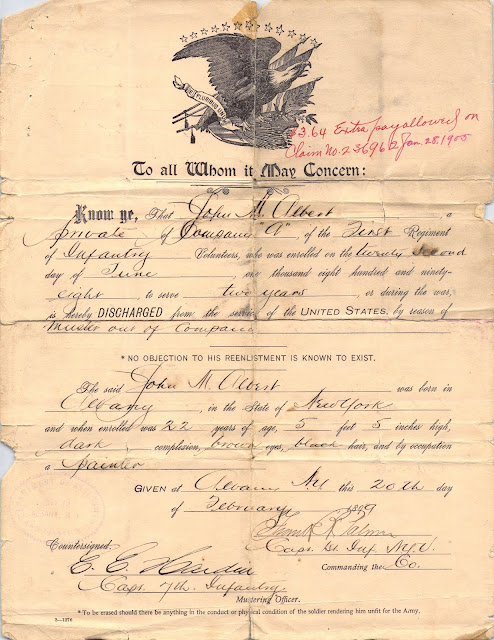 E PLURIBUS UNUM
$3.64 Extra pay allowed on
Claim No. 236962 Jan. 28. 1900
To all Whom it May Concern:
Know ye, That John M. Albert, a
private of Company "A" of the First Regiment
of Infantry Volunteers, who was enrolled on the twenty second
day of June, one thousand eight hundred and ninety-
eight, to serve two years, or during the war,
is hereby DISCHARGED from the service of the UNITED STATES, by reason of
Muster out of Company
* NO OBJECTION TO HIS REENLISTMENT IS KNOWN TO EXIST.
The said John M. Albert was born in
Albany, in the State of New York
and when enrolled was 22 years of age, 5 feet 5 inches high,
dark complexion, brown eyes, black hair, and by occupation
a painter
GIVEN at Albany NY this 20th day
of February 1899
Capt. 1st Inf. N.Y.V.
Commanding the Co.
Countersigned:
Capt. 7th. Infantry.
Mustering Officer.
* To be erased should there be anything in the conduct or physical condition of the soldier rendering him unfit for the Army.